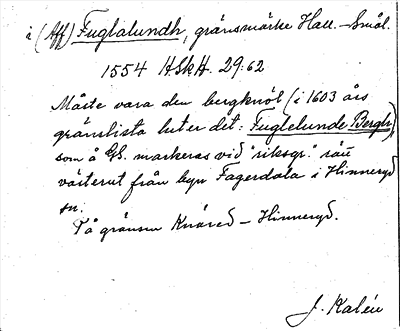 i (Aff) Fuglalundh, gränsmärke Hall.-Smål.
1554 HSkH. 29:62
Måste vara den bergknöl (i 1603 års
gränslista heter det: Fuglelunde Bergh),
som å GS. markeras vid "riksgr." rätt
västerut från byn Fagerdala i Hinneryd
sn.
På gränsen Knäred - Hinneryd.
J. Kalén